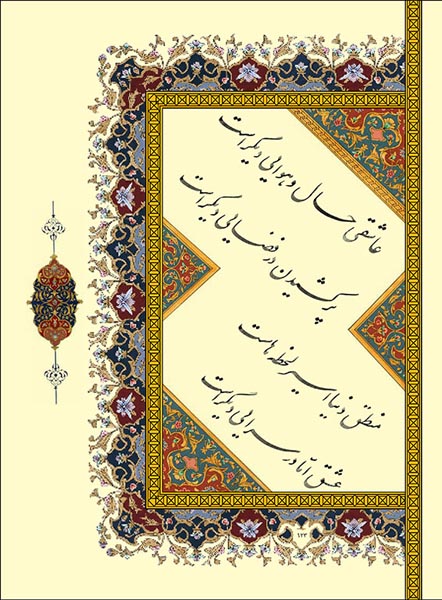 عاشقی حال و هوایی دیگر است
پر کشیدن در فضایی دیگر است
منطق دنیا اسیر لحظه هاست
عشق آباد سرایی دیگر است
۱۲۳